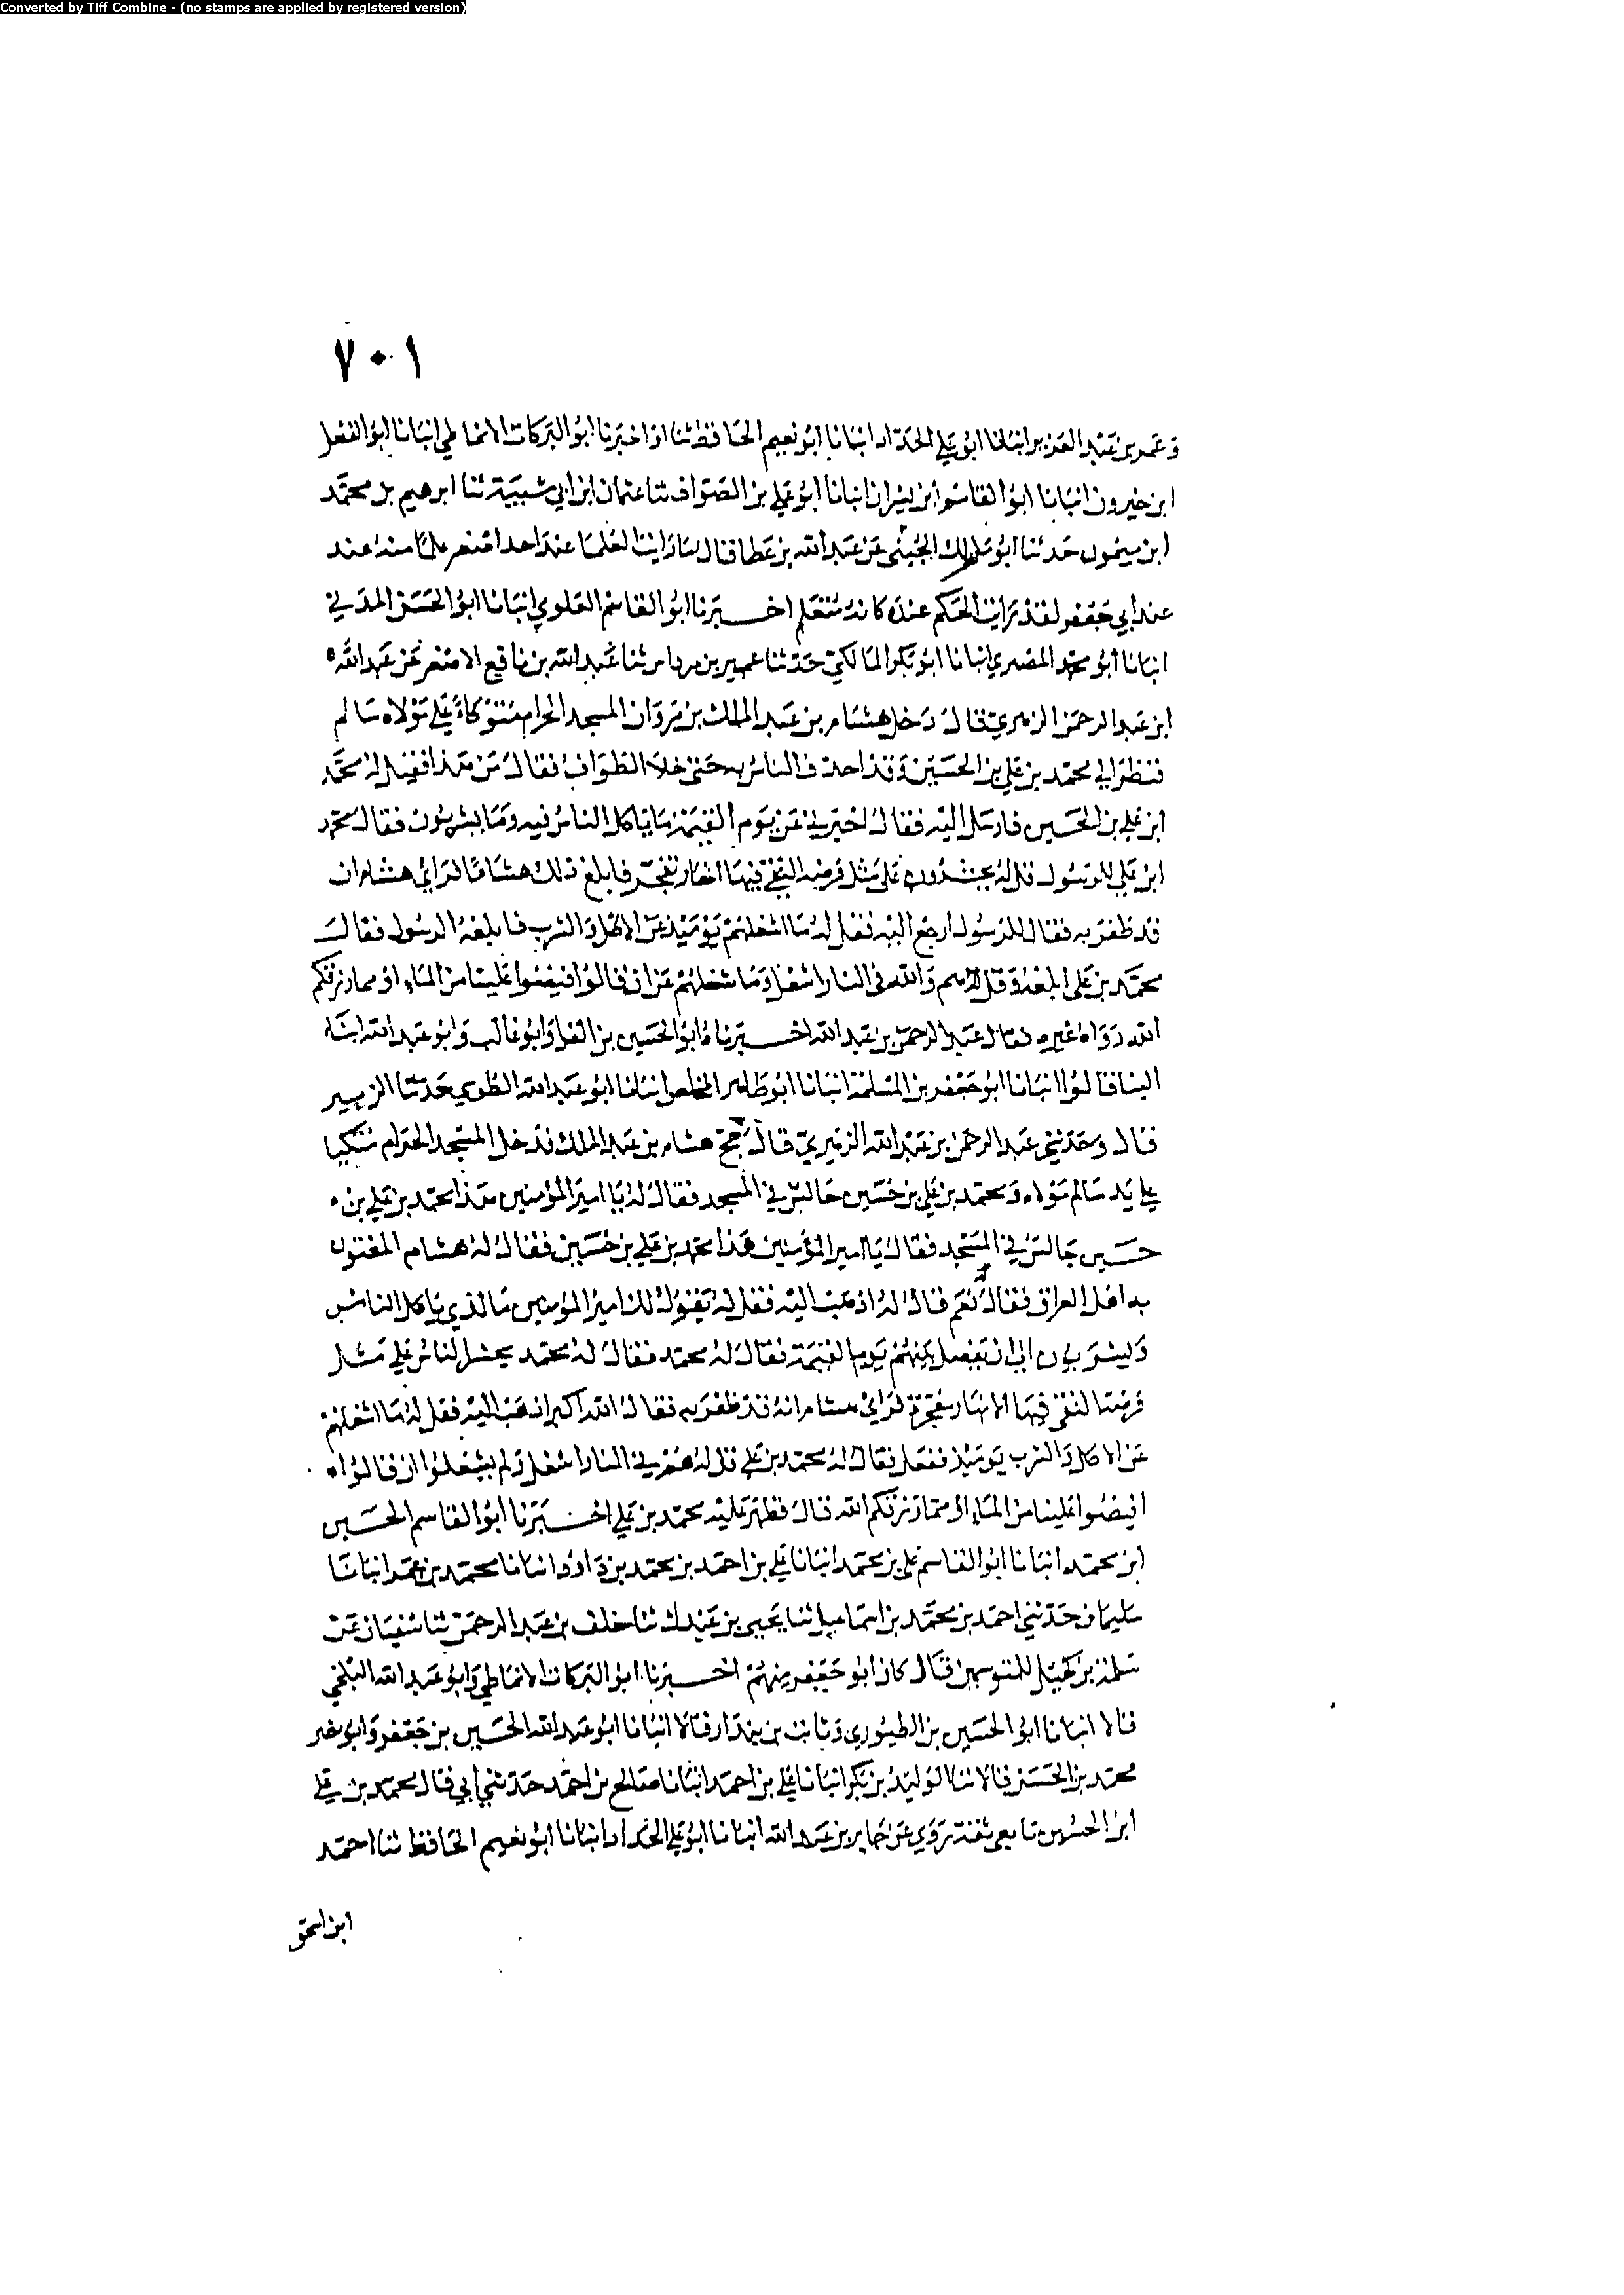 Converted by Tiff Combine - (no stamps are applied by registered version)
٧٠١
وعمر بن عبد العزيز انبانا ابو علي الحداد انبانا ابو نعيم الحافظ ثنا اذا خبرنا ابو البركات الانماطي انبانا ابو الفضل
ابن خيرون انبانا ابو القاسم ابن بشران انبانا ابو علي بن الصواف ثنا عثمان ابن ابي شيبة ثنا ابرهيم بن محمد
ابن ميمون حدثنا ابو ملك الجبني عن عبد الله بن عطا قال ما رايت العلما عند احد اصغر علما منه عند
عند ابي جعفر لقد رايت الحكم عنده كانه متعلم اخبرنا ابو القاسم العلوي انبانا ابو الحسن المدني
انبانا ابو محمد المصري انبانا ابو بكر المالكي حدثنا عمير بن مرداس ثنا عبد الله بن نافع الاصغر عن عبد الله
ابن عبد الرحمن الزهري قال دخل هشام بن عبد الملك بن مروان المسجد الحرام متوكاء علي مولاه سالم
فنظر الي محمد بن علي بن الحسين وقد احدق الناس به حتى خلا الطواف فقال من هذا فقيل له محمد
ابن علي بن الحسين فارسل اليه فقال اخبرني عن يوم القيمة ما ياكل الناس فيه وما يشربون فقال محمد
ابن علي للرسول قل له يحشرون على مثل قرصة النقي فيها انهار تفجر فابلغ ذلك هشاما فراي هشام ان
قد ظفر به فقال للرسول ارجع اليه فقل له ما اشغلهم يوميذ عن الاكل والشرب فابلغه الرسول فقال
محمد بن علي ابلغه وقل له هم والله في النار اشغل وما شغلهم عن ان قالوا افيضوا علينا من الماء او مما رزقكم
الله رواه غيره فقال عبد الرحمن بن عبد الله اخبرناه ابو الحسين بن الفرا وابو غالب وابو عبد الله ابنا
البنا قالوا انبانا ابو جعفر بن المسلمة انبانا ابو طاهر المخلص انبانا ابو عبد الله الطوسي حدثنا الزبير
قال وحدثني عبد الرحمن بن عبد الله الزهري قال حج هشام بن عبد الملك فدخل المسجد الحرام متكيا
علي يد سالم مولاه ومحمد بن علي بن حسين جالس في المسجد فقال له يا امير المؤمنين هذا محمد بن علي بن
حسين جالس في المسجد فقال يا امير المؤمنين هذا محمد بن علي بن حسين فقال له هشام المفتون
به اهل العراق فقال نعم قال له اذهب اليه فقل له يقول لك امير المؤمنين ما الذي ياكل الناس
ويشربون الي ان يفصل بينهم يوم القيمة فقال له محمد فقال له محمد يحشر الناس علي مثل
قرصة النقي فيها الانهار مفجرة فراي هشام انه قد ظفر به فقال الله اكبر اذهب اليه فقل له ما اشغلهم
عن الاكل والشرب يوميذ ففعل فقال له محمد بن علي قل له هم في النار اشغل ولم يشغلوا ان قالوا
افيضوا علينا من الماء او مما رزقكم الله قال فظهر عليه محمد بن علي اخبرنا ابو القاسم الحسين
ابن محمد انبانا ابو القاسم علي بن محمد انبانا علي بن احمد بن محمد بن داود انبانا محمد بن عمر انبانا
سليمان حدثني احمد بن محمد بن اسماعيل ثنا يحيى بن عبدك ثنا خلف بن عبد الرحمن ثنا سفيان عن
سلمة بن كهيل للمتوسمين قال كان ابو جعفر منهم اخبرنا ابو البركات الانماطي وابو عبد الله البلخي
قالا انبانا ابو الحسين بن الطيوري وثابت بن بندار قالا انبانا ابو عبد الله الحسين بن جعفر وابو نصر
محمد بن الحسن قالا ثنا الوليد بن بكر انبانا علي بن احمد انبانا صالح بن احمد حدثني ابي قال محمد بن علي
ابن الحسين تابعي ثقة روي عن جابر بن عبد الله انبانا ابو علي الحداد انبانا ابو نعيم الحافظ ثنا احمد
ابن اسحق